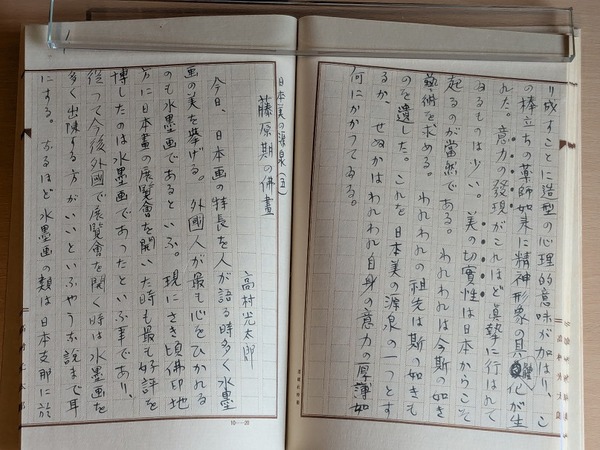 り成すことに造型の心理的意味が加はり、こ
の棒立ちの薬師如来に精神形象の具化が生
れた。意力の發現がこれほど眞摯に行はれて
ゐるものは少い。美の切實性は日本からこそ
起るのが當然である。われわれは今斯の如き
藝術を求める。われわれの祖先は斯の如きも
のを遺した。これを日本美の源泉の一つとす
るか、せぬかはわれわれ自身の意力の厚薄如
何にかかつてゐる。
日本美の源泉(五)
藤原期の佛畫
高村光太郎
今日、日本画の特長を人が語る時多く水墨
画の美を挙げる。外國人が最も心をひかれる
のも水墨画であるといふ。現にさき頃佛印地
方に日本畫の展覧會を開いた時も最も好評を
博したのは水墨画であつたといふ事であり、
從つて今後外國で展覧會を開く時は水墨画を
多く出陳する方がいいといふやうな説まで耳
にする。なるほど水墨画の類は日本支那に於
10—20